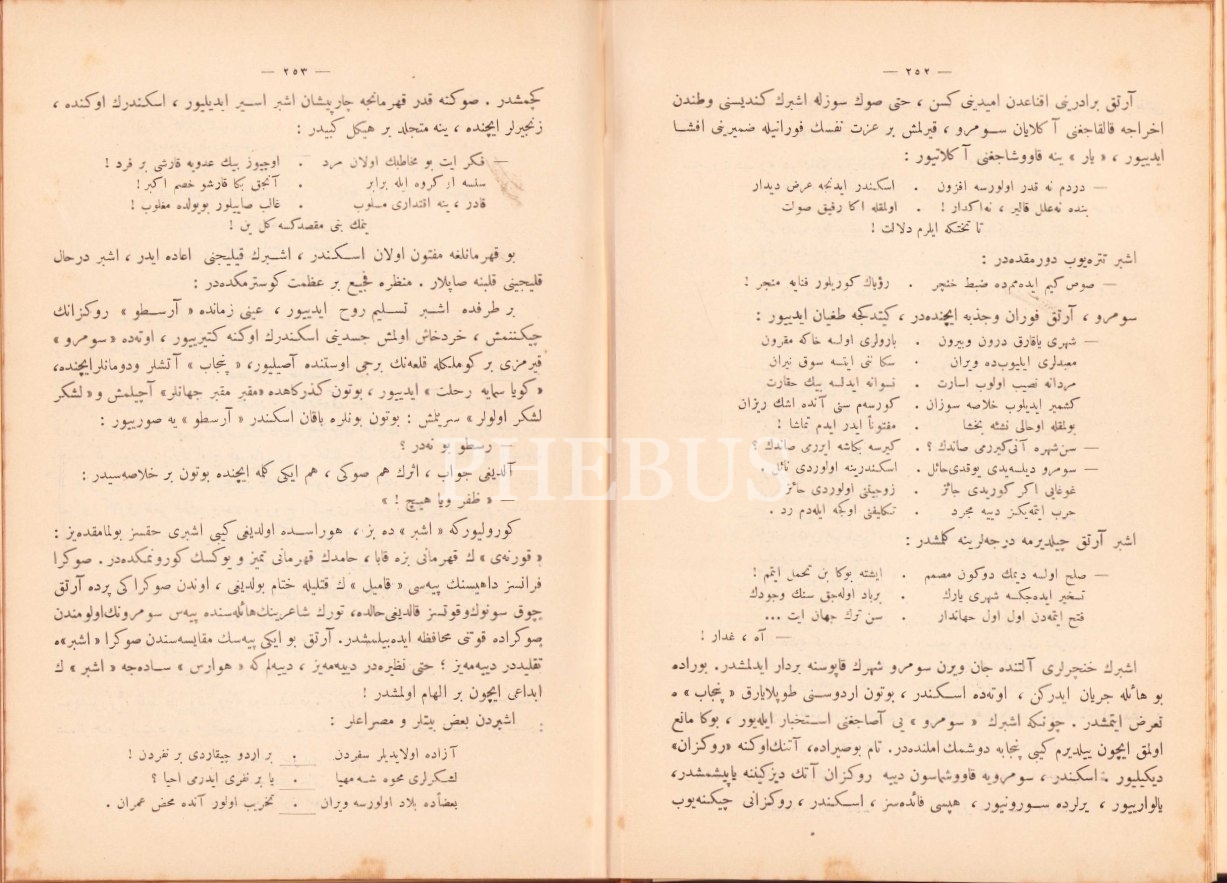 — ٢٥٢ —
آرتق برادرینی اقناعدن امیدینی كسن ، حتی صوك سوزله اشبرك كندیسنی وطندن
اخراجه قالقاجغنی آ كلایان سومرو ، قیرلمش بر عزت نفسك فورانیله ضمیرینی افشا
ایدییور ، « یار » ینه قاووشاجغنی آ كلاتیور :
— دردم نه قدر اولورسه افزون . اسكندر ایدنجه عرض دیدار
بنده نه‌علل قالیر ، نه‌اكدار ! . اولمقله اكا رفیق صولت
تا تختكه ایلرم دلالت !
اشبر تتره‌یوب دورمقده‌در :
— صوص كیم ایده‌مم‌ده ضبط خنجر . رؤیاك كوریلور فنایه منجر !
سومرو ، آرتق فوران وجذبه ایچنده‌در ، كیتدكجه طغیان ایدییور :
— شهری یاقارق درون وبیرون . بارولری اولسه خاكه مقرون
معبدلری ایلیوب‌ده ویران . سكا نی ایتسه سوق نیران
مردانه نصیب اولوب اسارت . نسوانه ایدلسه بیك حقارت
كشمیر ایدیلوب خلاصه سوزان . كورسه‌م سنی آنده اشك ریزان
بولمقله اوحالی نشئه بخشا . مفتوناً ایدر ایدم تماشا !
— سن‌شهره آنی‌كیررمی صاندك ؟ . كیرسه بكاشه ایررمی صاندك ؟
— سومرو دیلسه‌یدی یوقدی‌حائل . اسكندرینه اولوردی نائل
غوغایی اكر كوریدی جائز . زوجیتنی اولوردی حائز
حرب ایتمه‌یكز دییه مجرد . تكلیفنی اوكجه ایله‌دم رد .
اشبر آرتق چیلدیرمه درجه‌لرینه كلمشدر :
— صلح اولسه دیمك دوكون مصمم . ایشته بوكا بن تحمل ایتمم !
تسخیر ایده‌جكسه شهری یارك . برباد اوله‌جق سنك وجودك
فتح ایتمه‌دن اول اول جهاندار . سن ترك جهان ایت ...
— آه ، غدار !
اشبرك خنجرلری آلتنده جان ویرن سومرو شهرك قاپوسنه بردار ایدلمشدر . بوراده
بو هائله جریان ایدركن ، اوته‌ده اسكندر ، بوتون اردوسنی طوپلایارق « پنجاب » ه
تعرض ایتمشدر . چونكه اشبرك « سومرو » یی آصاجغنی استخبار ایله‌یور ، بوكا مانع
اولمق ایچون ییلدیرم كیبی پنجابه دوشمك املنده‌در. تام بوصیراده، آتنك‌اوكنه « روكزان »
دیكیلیور . اسكندر ، سومرویه قاووشماسون دییه روكزان آتك دیزكیننه یاپیشمشدر،
یالوارییور ، یرلرده سورونیور ، هپسی فائده‌سز ، اسكندر ، روكزانی چیكنه‌یوب
— ٢٥٣ —
كچمشدر . صوكنه قدر قهرمانجه چارپیشان اشبر اسیر ایدیلیور ، اسكندرك اوكنده ،
زنجیرلر ایچنده ، ینه متجلد بر هیكل كبیدر :
— فكر ایت بو مخاطبك اولان مرد . اوچیوز بیك عدویه قارشی بر فرد !
سنسه از گروه ایله برابر . آنجق بكا قارشو خصم اكبر !
قادر ، ینه اقتداری مسلوب . غالب صاییلور بویولده مغلوب !
یمك بنی مقصدكسه كل ین !
بو قهرمانلغه مفتون اولان اسكندر ، اشبرك قیلیجنی اعاده ایدر ، اشبر درحال
قلیجینی قلبنه صاپلار . منظره فجیع بر عظمت كوسترمكده‌در :
بر طرفده اشبر تسلیم روح ایدییور ، عینی زمانده « آرسطو » روكزانك
چیكننمش ، خردخاش اولمش جسدینی اسكندرك اوكنه كتیرییور ، اوته‌ده « سومرو »
قیرمزی بر كوملكله قلعه‌نك برجی اوستنده آصیلیور، « پنجاب » آتشلر ودومانلرایچنده،
« گویا سمایه رحلت » ایدییور ، بوتون كذركاهده « مقبر مقبر جهانلر » آچیلمش و « لشكر
لشكر اولولر » سریلمش : بوتون بونلره باقان اسكندر « آرسطو » یه صورییور :
— رسطو بو نه‌در ؟
آلدیغی جواب ، اثرك هم صوكی ، هم ایكی كله ایچنده بوتون بر خلاصه‌سیدر :
« ظفر ویا هیچ ! »
كورولیوركه « اشبر » ده بز ، هوراسده اولدیغی كیبی اشبری حقسز بولمامقده‌یز :
« قورنه‌ی » ك قهرمانی بزه قابا ، حامدك قهرمانی تمیز و یوكسك كورونمكده‌در . صوكرا
فرانسز داهیسنك پیه‌سی « قامیل » ك قتلیله ختام بولدیغی ، اوندن صوكراكی پرده آرتق
چوق سونوك‌وقوتسز قالدیغی‌حالده، تورك شاعرینك‌هائله‌سنده پیه‌س سومرونك‌اولومندن
صوكراده قوتنی محافظه ایده‌بیلمشدر. آرتق بو ایكی پیه‌سك مقایسه‌سندن صوكرا « اشبر »ه
تقلیددر دییه‌مه‌یز ؛ حتی نظیره‌در دییه‌مه‌یز ، دییه‌لم كه « هوراس » ساده‌جه « اشبر » ك
ابداعی ایچون بر الهام اولمشدر !
اشبردن بعض بیتلر و مصراعلر :
آزاده اولایدیلر سفردن . بر اردو چیقاردی بر نفردن !
لشكرلری محوه شه مهیا . یا بر نفری ایدرمی احیا ؟
بعضاًده بلاد اولورسه ویران . تخریب اولور آنده محض عمران .
PHEBUS